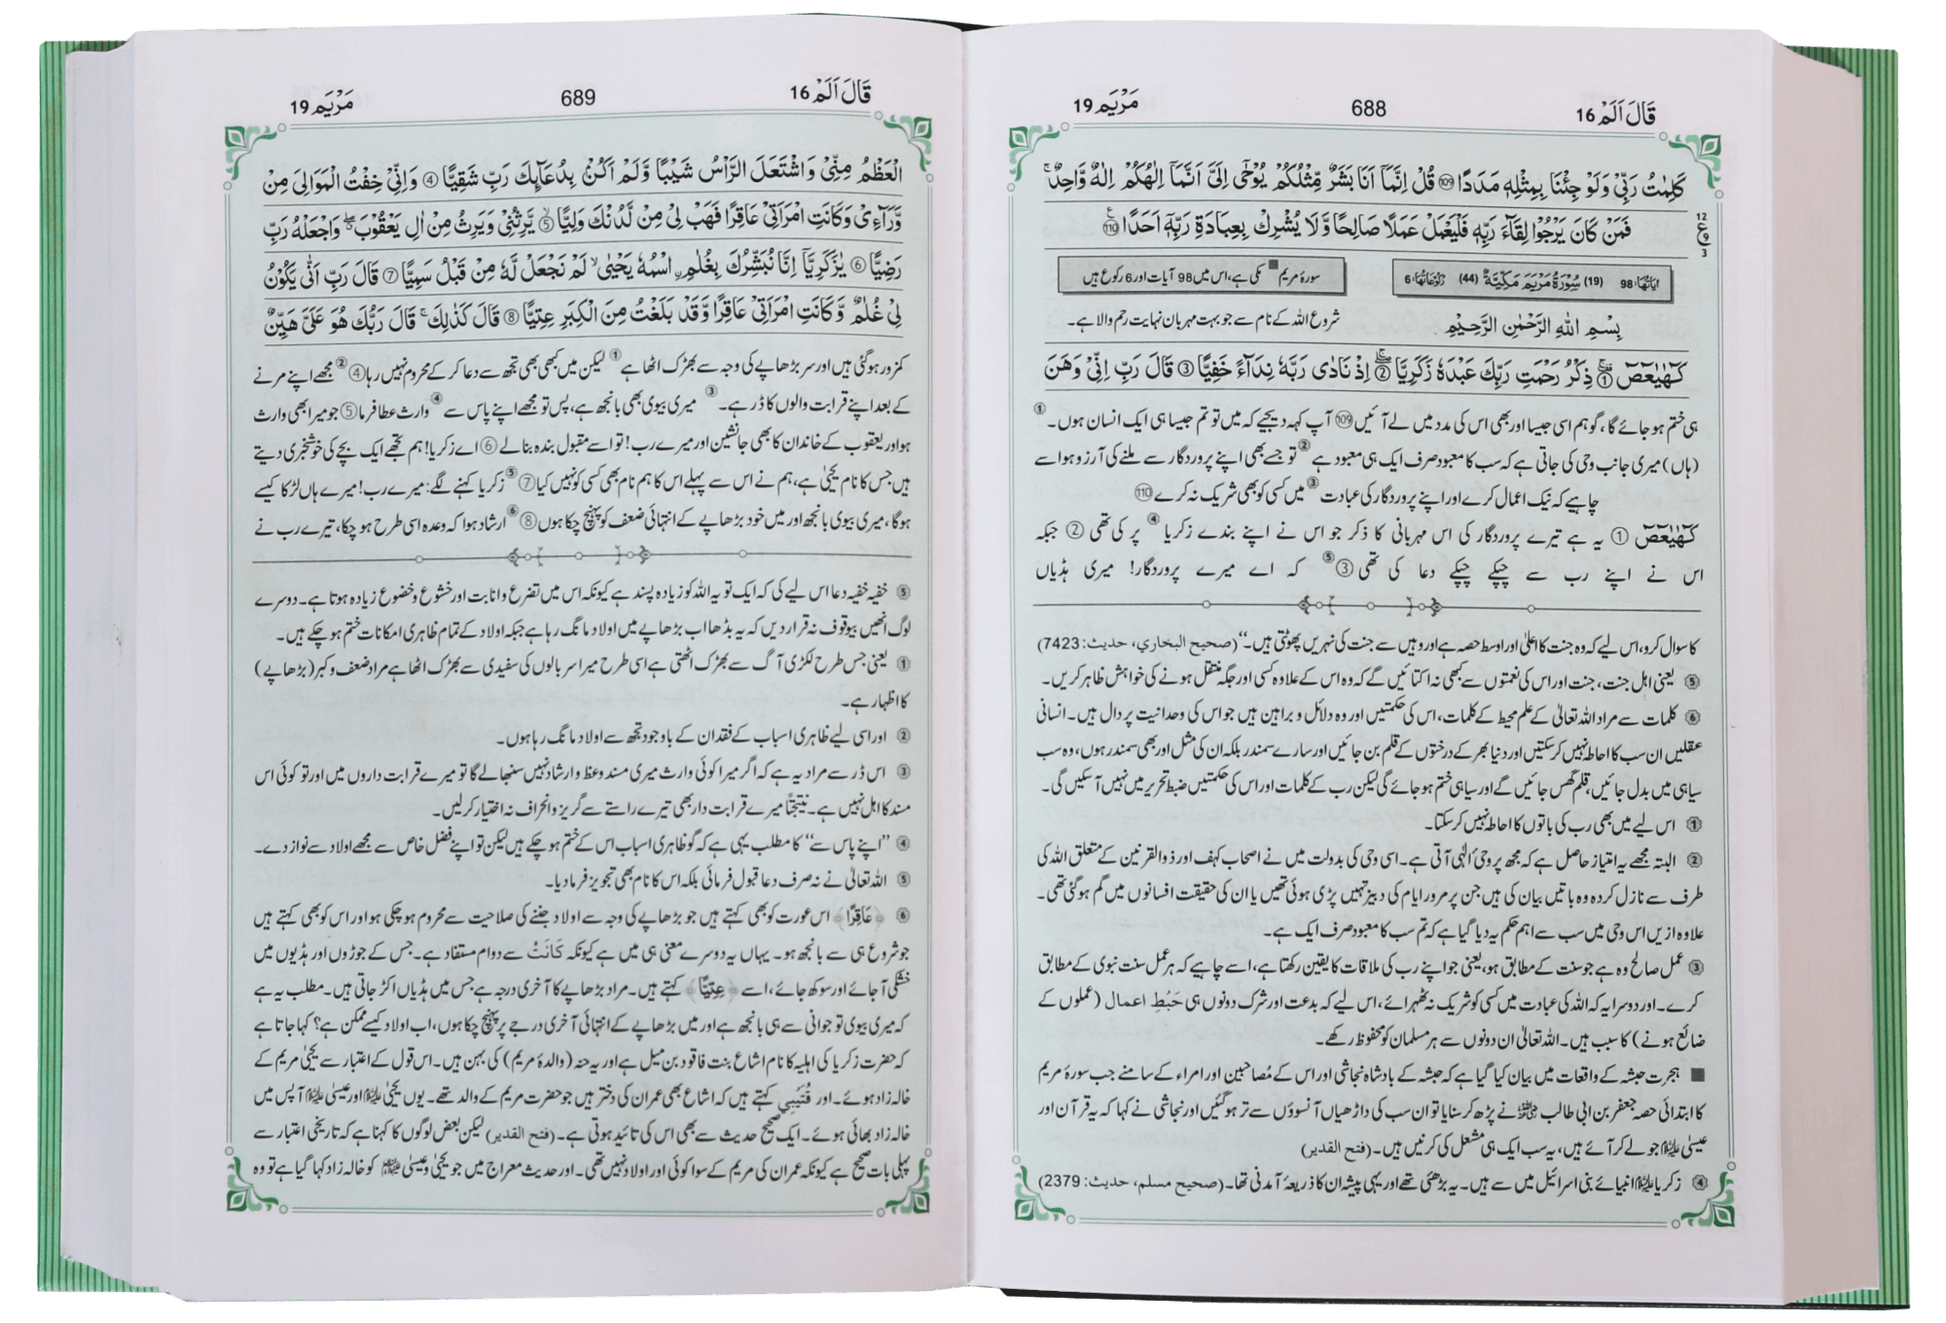 قَالَ اَلَمْ 16
688
مَرْيَم 19
كَلِمٰتُ رَبِّيْ وَلَوْ جِئْنَا بِمِثْلِهٖ مَدَدًا ⑩⑨ قُلْ اِنَّمَاۤ اَنَا بَشَرٌ مِّثْلُكُمْ يُوْحٰۤى اِلَيَّ اَنَّمَاۤ اِلٰهُكُمْ اِلٰهٌ وَّاحِدٌ ۚ
فَمَنْ كَانَ يَرْجُوْا لِقَآءَ رَبِّهٖ فَلْيَعْمَلْ عَمَلًا صَالِحًا وَّلَا يُشْرِكْ بِعِبَادَةِ رَبِّهٖۤ اَحَدًا ⑪⓪
12 ع 9 3
اٰيَاتُهَا: 98 (19) سُوْرَةُ مَرْيَمَ مَكِّيَّةٌ (44) رُكُوْعَاتُهَا: 6
سورۂ مریم ■ مکی ہے، اس میں 98 آیات اور 6 رکوع ہیں
بِسْمِ اللهِ الرَّحْمٰنِ الرَّحِيْمِ
شروع اللہ کے نام سے جو بہت مہربان نہایت رحم والا ہے۔
كٓهٰيٰعٓصٓ ① ذِكْرُ رَحْمَتِ رَبِّكَ عَبْدَهٗ زَكَرِيَّا ② اِذْ نَادٰى رَبَّهٗ نِدَآءً خَفِيًّا ③ قَالَ رَبِّ اِنِّيْ وَهَنَ
ہی ختم ہو جائے گا، گو ہم اسی جیسا اور بھی اس کی مدد میں لے آئیں 109 آپ کہہ دیجیے کہ میں تو تم جیسا ہی ایک انسان ہوں۔ ①
(ہاں) میری جانب وحی کی جاتی ہے کہ سب کا معبود صرف ایک ہی معبود ہے ② تو جسے بھی اپنے پروردگار سے ملنے کی آرزو ہو اسے
چاہیے کہ نیک اعمال کرے اور اپنے پروردگار کی عبادت ③ میں کسی کو بھی شریک نہ کرے 110
كٓهٰيٰعٓصٓ ① یہ ہے تیرے پروردگار کی اس مہربانی کا ذکر جو اس نے اپنے بندے زکریا ④ پر کی تھی ② جبکہ
اس نے اپنے رب سے چپکے چپکے دعا کی تھی ③ ⑤ کہ اے میرے پروردگار! میری ہڈیاں
کا سوال کرو، اس لیے کہ وہ جنت کا اعلیٰ اور اوسط حصہ ہے اور وہیں سے جنت کی نہریں پھوٹتی ہیں۔“ (صحيح البخاري، حديث: 7423)
⑤ یعنی اہل جنت، جنت اور اس کی نعمتوں سے کبھی نہ اکتائیں گے کہ وہ اس کے علاوہ کسی اور جگہ منتقل ہونے کی خواہش ظاہر کریں۔
⑥ کلمات سے مراد اللہ تعالیٰ کے علم محیط کے کلمات، اس کی حکمتیں اور وہ دلائل و براہین ہیں جو اس کی وحدانیت پر دال ہیں۔ انسانی
عقلیں ان سب کا احاطہ نہیں کر سکتیں اور دنیا بھر کے درختوں کے قلم بن جائیں اور سارے سمندر بلکہ ان کی مثل اور بھی سمندر ہوں، وہ سب
سیاہی میں بدل جائیں، قلم گھس جائیں گے اور سیاہی ختم ہو جائے گی لیکن رب کے کلمات اور اس کی حکمتیں ضبط تحریر میں نہیں آ سکیں گی۔
① اس لیے میں بھی رب کی باتوں کا احاطہ نہیں کر سکتا۔
② البتہ مجھے یہ امتیاز حاصل ہے کہ مجھ پر وحی الٰہی آتی ہے۔ اسی وحی کی بدولت میں نے اصحاب کہف اور ذوالقرنین کے متعلق اللہ کی
طرف سے نازل کردہ وہ باتیں بیان کی ہیں جن پر مرور ایام کی دبیز تہیں پڑی ہوئی تھیں یا ان کی حقیقت افسانوں میں گم ہو گئی تھی۔
علاوہ ازیں اس وحی میں سب سے اہم حکم یہ دیا گیا ہے کہ تم سب کا معبود صرف ایک ہے۔
③ عمل صالح وہ ہے جو سنت کے مطابق ہو، یعنی جو اپنے رب کی ملاقات کا یقین رکھتا ہے، اسے چاہیے کہ ہر عمل سنت نبوی کے مطابق
کرے۔ اور دوسرا یہ کہ اللہ کی عبادت میں کسی کو شریک نہ ٹھہرائے، اس لیے کہ بدعت اور شرک دونوں ہی حَبْطِ اعمال (عملوں کے
ضائع ہونے) کا سبب ہیں۔ اللہ تعالیٰ ان دونوں سے ہر مسلمان کو محفوظ رکھے۔
■ ہجرت حبشہ کے واقعات میں بیان کیا گیا ہے کہ حبشہ کے بادشاہ نجاشی اور اس کے مُصاحبین اور امراء کے سامنے جب سورۂ مریم
کا ابتدائی حصہ جعفر بن ابی طالب ؓ نے پڑھ کر سنایا تو ان سب کی داڑھیاں آنسوؤں سے تر ہو گئیں اور نجاشی نے کہا کہ یہ قرآن اور
عیسیٰ علیہ السلام جو لے کر آئے ہیں، یہ سب ایک ہی مشعل کی کرنیں ہیں۔ (فتح القدير)
④ زکریا علیہ السلام انبیائے بنی اسرائیل میں سے ہیں۔ یہ بڑھئی تھے اور یہی پیشہ ان کا ذریعۂ آمدنی تھا۔ (صحيح مسلم، حديث: 2379)
قَالَ اَلَمْ 16
689
مَرْيَم 19
الْعَظْمُ مِنِّيْ وَاشْتَعَلَ الرَّاْسُ شَيْبًا وَّلَمْ اَكُنْۢ بِدُعَآئِكَ رَبِّ شَقِيًّا ④ وَاِنِّيْ خِفْتُ الْمَوَالِيَ مِنْ
وَّرَآءِيْ وَكَانَتِ امْرَاَتِيْ عَاقِرًا فَهَبْ لِيْ مِنْ لَّدُنْكَ وَلِيًّا ⑤ يَّرِثُنِيْ وَيَرِثُ مِنْ اٰلِ يَعْقُوْبَ ۖ وَاجْعَلْهُ رَبِّ
رَضِيًّا ⑥ يٰزَكَرِيَّاۤ اِنَّا نُبَشِّرُكَ بِغُلٰمِ ۣاسْمُهٗ يَحْيٰى ۙ لَمْ نَجْعَلْ لَّهٗ مِنْ قَبْلُ سَمِيًّا ⑦ قَالَ رَبِّ اَنّٰى يَكُوْنُ
لِيْ غُلٰمٌ وَّكَانَتِ امْرَاَتِيْ عَاقِرًا وَّقَدْ بَلَغْتُ مِنَ الْكِبَرِ عِتِيًّا ⑧ قَالَ كَذٰلِكَ ۚ قَالَ رَبُّكَ هُوَ عَلَيَّ هَيِّنٌ
کمزور ہو گئی ہیں اور سر بڑھاپے کی وجہ سے بھڑک اٹھا ہے ① لیکن میں کبھی بھی تجھ سے دعا کر کے محروم نہیں رہا ④ ② مجھے اپنے مرنے
کے بعد اپنے قرابت والوں کا ڈر ہے۔ ③ میری بیوی بھی بانجھ ہے، پس تو مجھے اپنے پاس سے ④ وارث عطا فرما ⑤ جو میرا بھی وارث
ہو اور یعقوب کے خاندان کا بھی جانشین اور میرے رب! تو اسے مقبول بندہ بنا لے ⑥ اے زکریا! ہم تجھے ایک بچے کی خوشخبری دیتے
ہیں جس کا نام یحییٰ ہے، ہم نے اس سے پہلے اس کا ہم نام بھی کسی کو نہیں کیا ⑦ ⑤ زکریا کہنے لگے: میرے رب! میرے ہاں لڑکا کیسے
ہوگا، میری بیوی بانجھ اور میں خود بڑھاپے کے انتہائی ضعف کو پہنچ چکا ہوں ⑧ ⑥ ارشاد ہوا کہ وعدہ اسی طرح ہو چکا، تیرے رب نے
⑤ خفیہ خفیہ دعا اس لیے کی کہ ایک تو یہ اللہ کو زیادہ پسند ہے کیونکہ اس میں تضرع و انابت اور خشوع و خضوع زیادہ ہوتا ہے۔ دوسرے
لوگ انھیں بیوقوف نہ قرار دیں کہ یہ بڈھا اب بڑھاپے میں اولاد مانگ رہا ہے جبکہ اولاد کے تمام ظاہری امکانات ختم ہو چکے ہیں۔
① یعنی جس طرح لکڑی آگ سے بھڑک اٹھتی ہے اسی طرح میرا سر بالوں کی سفیدی سے بھڑک اٹھا ہے مراد ضعف و کبر (بڑھاپے)
کا اظہار ہے۔
② اور اسی لیے ظاہری اسباب کے فقدان کے باوجود تجھ سے اولاد مانگ رہا ہوں۔
③ اس ڈر سے مراد یہ ہے کہ اگر میرا کوئی وارث میری مسند وعظ و ارشاد نہیں سنبھالے گا تو میرے قرابت داروں میں اور تو کوئی اس
مسند کا اہل نہیں ہے۔ نتیجتًا میرے قرابت دار بھی تیرے راستے سے گریز و انحراف نہ اختیار کر لیں۔
④ ”اپنے پاس سے“ کا مطلب یہی ہے کہ گو ظاہری اسباب اس کے ختم ہو چکے ہیں لیکن تو اپنے فضل خاص سے مجھے اولاد سے نواز دے۔
⑤ اللہ تعالیٰ نے نہ صرف دعا قبول فرمائی بلکہ اس کا نام بھی تجویز فرما دیا۔
⑥ ﴿عَاقِرًا﴾ اس عورت کو بھی کہتے ہیں جو بڑھاپے کی وجہ سے اولاد جننے کی صلاحیت سے محروم ہو چکی ہو اور اس کو بھی کہتے ہیں
جو شروع ہی سے بانجھ ہو۔ یہاں یہ دوسرے معنی ہی میں ہے کیونکہ كَانَتْ سے دوام مستفاد ہے۔ جس کے جوڑوں اور ہڈیوں میں
خشکی آ جائے اور سوکھ جائے، اسے ﴿عِتِيًّا﴾ کہتے ہیں۔ مراد بڑھاپے کا آخری درجہ ہے جس میں ہڈیاں اکڑ جاتی ہیں۔ مطلب یہ ہے
کہ میری بیوی تو جوانی سے ہی بانجھ ہے اور میں بڑھاپے کے انتہائی آخری درجے پر پہنچ چکا ہوں، اب اولاد کیسے ممکن ہے؟ کہا جاتا ہے
کہ حضرت زکریا کی اہلیہ کا نام اشاع بنت فاقود بن میل ہے اور یہ حنہ (والدۂ مریم) کی بہن ہیں۔ اس قول کے اعتبار سے یحییٰ مریم کے
خالہ زاد ہوئے۔ اور قُتَيْبِي کہتے ہیں کہ اشاع بھی عمران کی دختر ہیں جو حضرت مریم کے والد تھے۔ یوں یحییٰ علیہ السلام اور عیسیٰ علیہ السلام آپس میں
خالہ زاد بھائی ہوئے۔ ایک صحیح حدیث سے بھی اس کی تائید ہوتی ہے۔ (فتح القدير) لیکن بعض لوگوں کا کہنا ہے کہ تاریخی اعتبار سے
پہلی بات صحیح ہے کیونکہ عمران کی مریم کے سوا کوئی اور اولاد نہیں تھی۔ اور حدیث معراج میں جو یحییٰ و عیسیٰ کو خالہ زاد کہا گیا ہے تو وہ